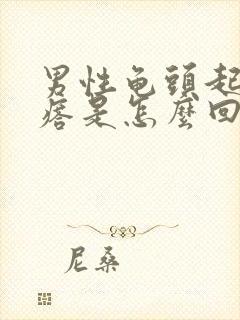 男性龟頭起
痞是怎麼回
尼桑